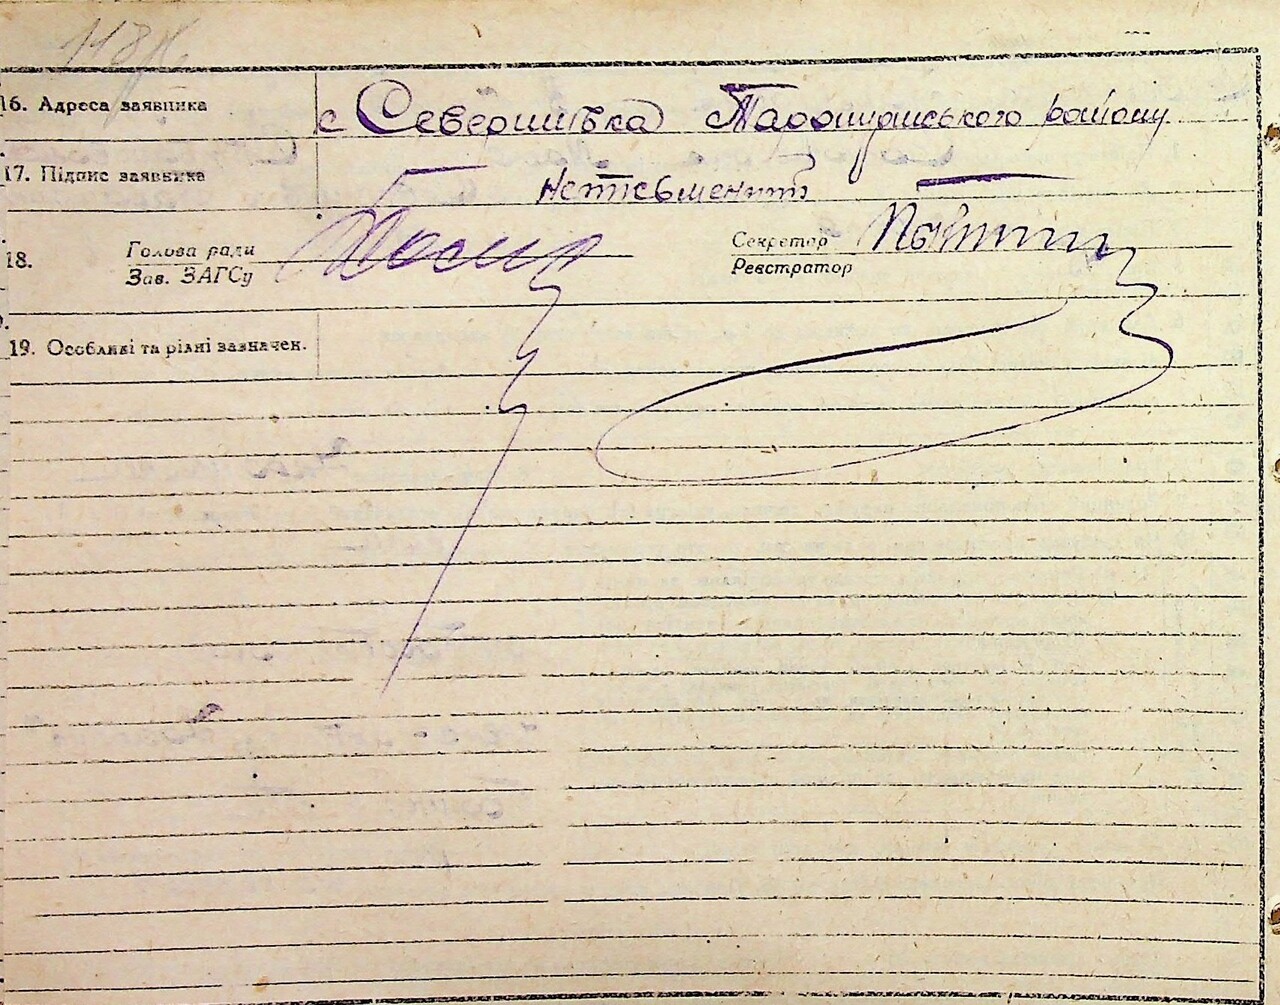 118
16. Адреса заявника с Северинівка Таращанського району
17. Підпис заявника неписьменний
18. Голова ради
Зав. ЗАГСу
Секретар
Реєстратор
19. Особливі та різні зазначен.